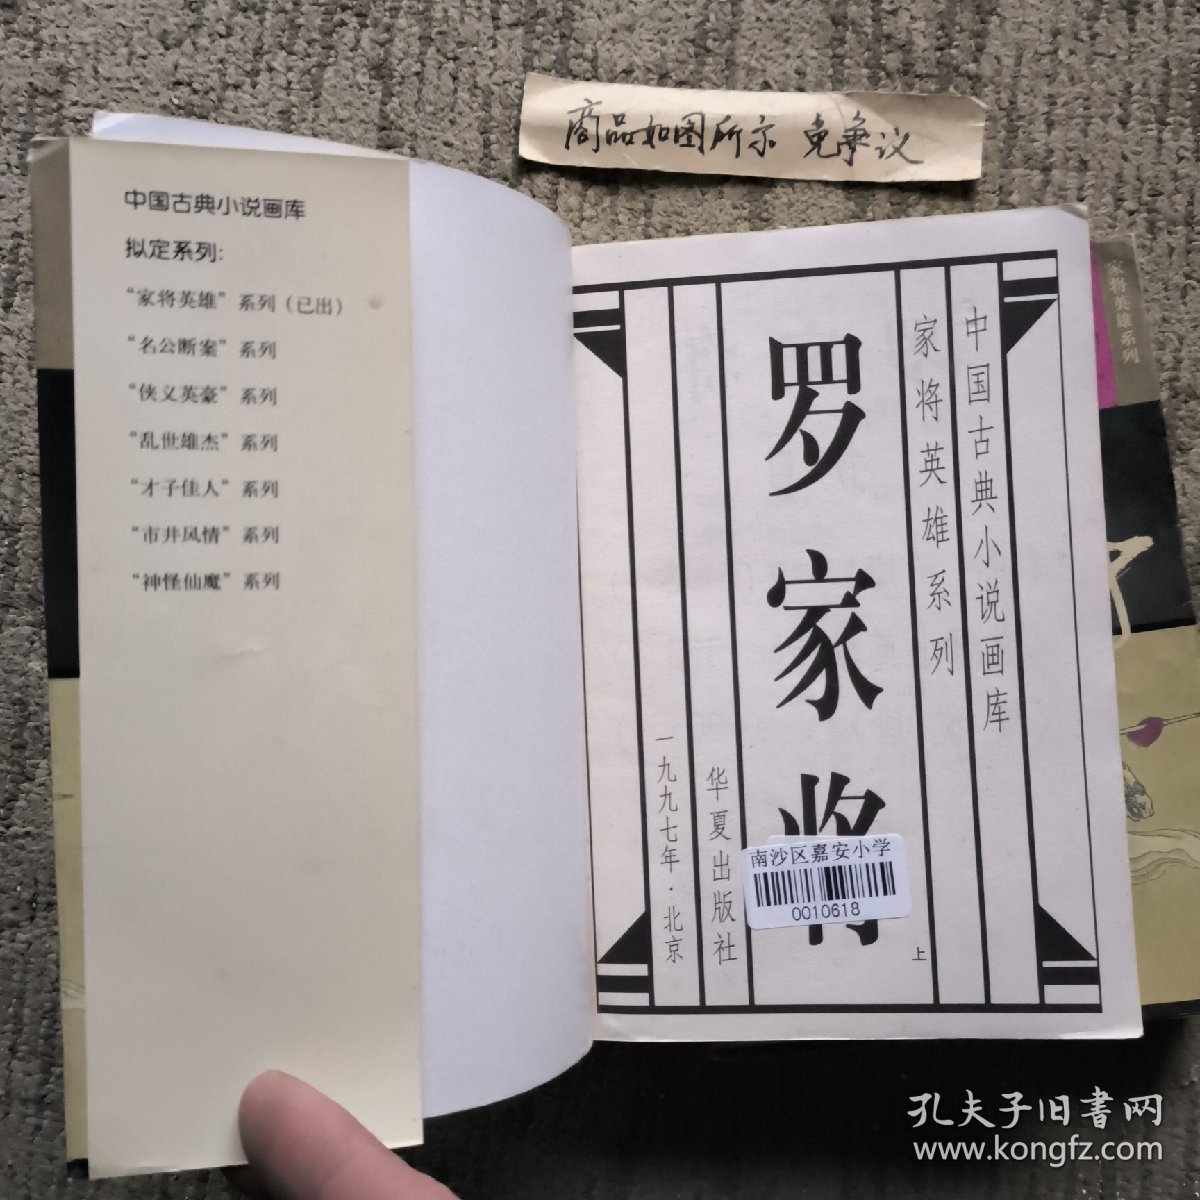 商品如图所示 免争议
中国古典小说画库
拟定系列:
“家将英雄”系列(已出)
“名公断案”系列
“侠义英豪”系列
“乱世雄杰”系列
“才子佳人”系列
“市井风情”系列
“神怪仙魔”系列
中国古典小说画库
家将英雄系列
罗家将
上
华夏出版社
一九九七年·北京
南沙区嘉安小学
0010618
家将英雄系列
孔夫子旧书网
www.kongfz.com